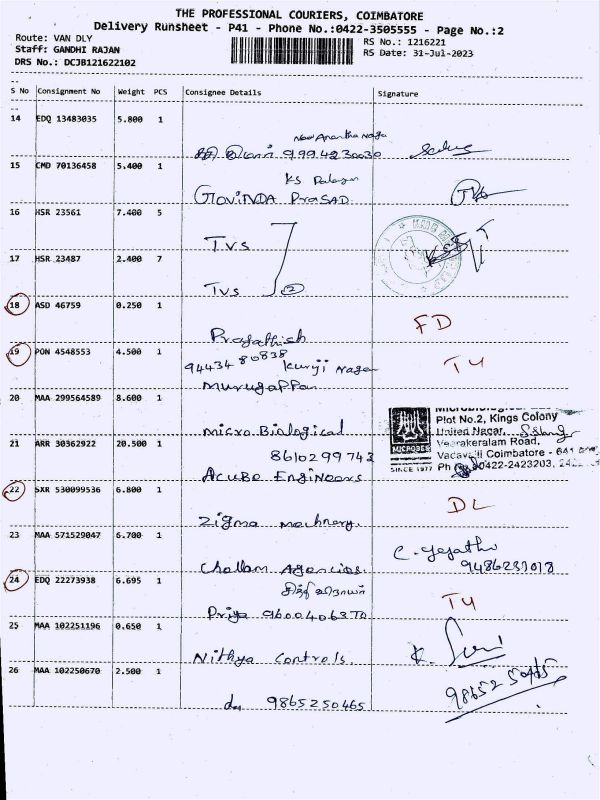 THE PROFESSIONAL COURIERS, COIMBATORE
Delivery Runsheet - P41 - Phone No.:0422-3505555 - Page No.:2
Route: VAN DLY
RS No.: 1216221
Staff: GANDHI RAJAN
RS Date: 31-Jul-2023
DRS No.: DCJB121622102
S No Consignment No Weight PCS Consignee Details Signature
14 EDQ 13483035 5.800 1
New Anantha Naga
9994230030
15 CMD 70136458 5.400 1
KS Palayam
GOVINDA PRASAD
16 HSR 23561 7.400 5
TVS
17 HSR 23487 2.400 7
TVS 2
18 ASD 46759 0.250 1
Prajathish FD
19 PON 4548553 4.500 1
94434 80838 Kurji Nagar TY
Murugappan
20 MAA 299564589 8.600 1
Micro Biological
Plot No.2, Kings Colony
United Nagar,
Veerakeralam Road,
Vadavalli Coimbatore - 641
Ph 0422-2423203,
MICROBES
SINCE 1977
21 ARR 30362922 20.500 1
8610299743
Acube Engineers
22 SXR 530099536 6.800 1
Zigma Machnery. DL
23 MAA 571529047 6.700 1
Chellam Agencies.
9486231018
24 EDQ 22273938 6.695 1
Priya 9600406370 TY
25 MAA 102251196 0.650 1
Nithya Controls.
26 MAA 102250670 2.500 1
do 9865250465
98652 50465